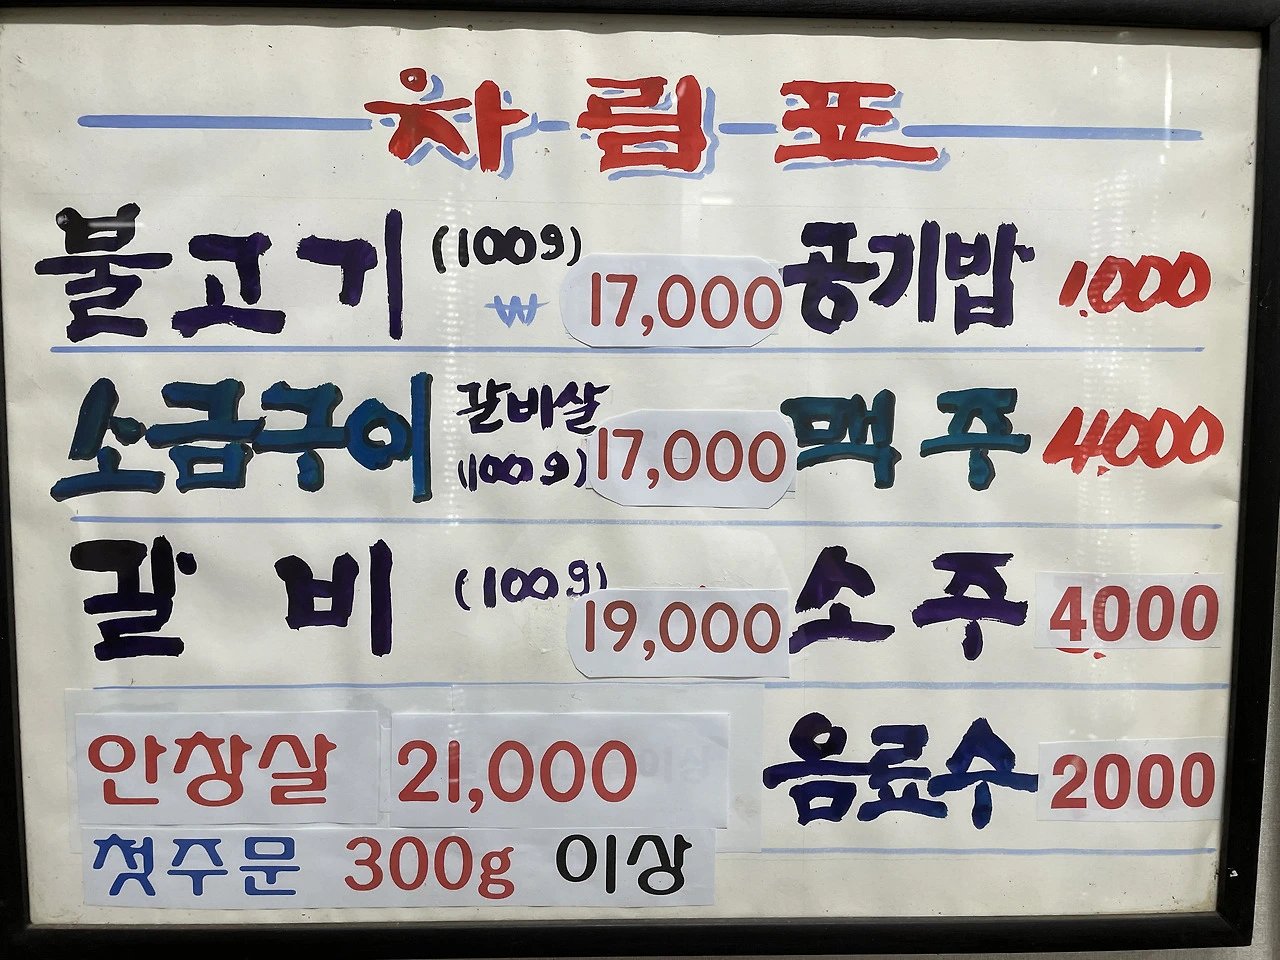 차림표
불고기 (100g) ₩ 17,000 공기밥 1,000
소금구이 갈비살 (100g) 17,000 맥주 4,000
갈비 (100g) 19,000 소주 4000
안창살 21,000 음료수 2000
첫주문 300g 이상